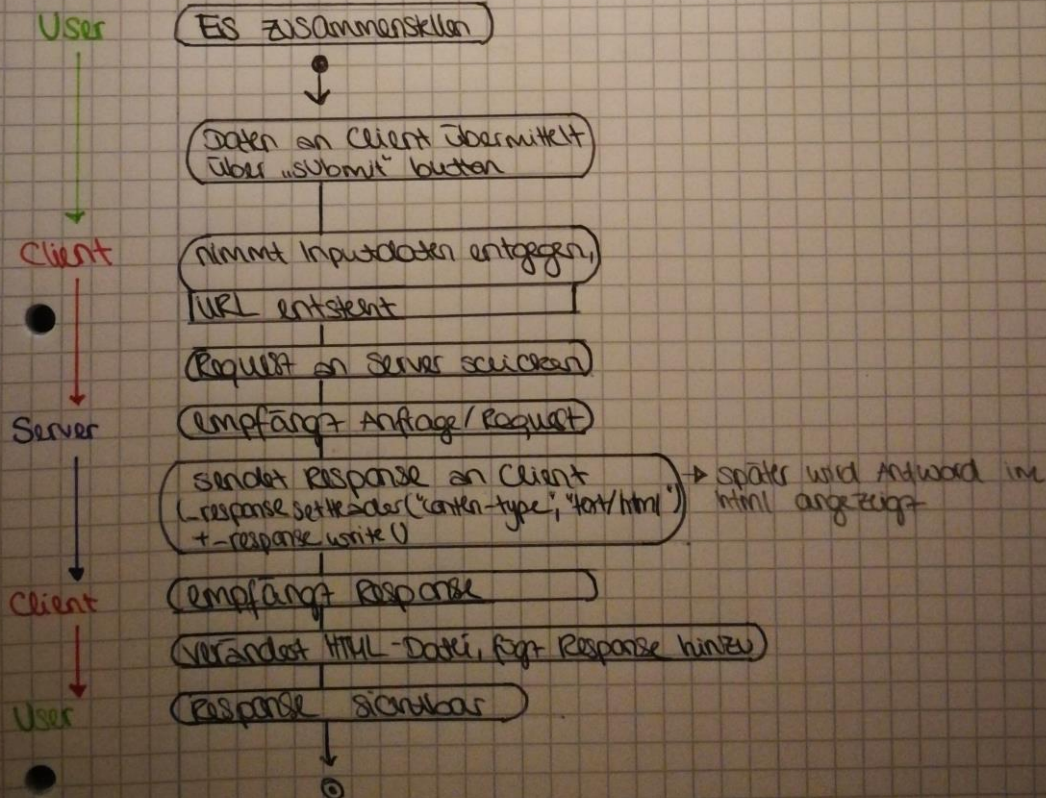 User
Eis zusammenstellen
Daten an Client übermittelt
über „submit" button
Client
nimmt Inputdaten entgegen,
URL entsteht
Request an Server schicken
Server
empfängt Anfrage/Request
sendet Response an Client
(_response.setHeader("conten-type", "text/html")
+ _response.write()
→ später wird Antword im
html angezeigt
Client
empfängt Response
verändert HTML-Datei, fügt Response hinzu
User
Response sichtbar